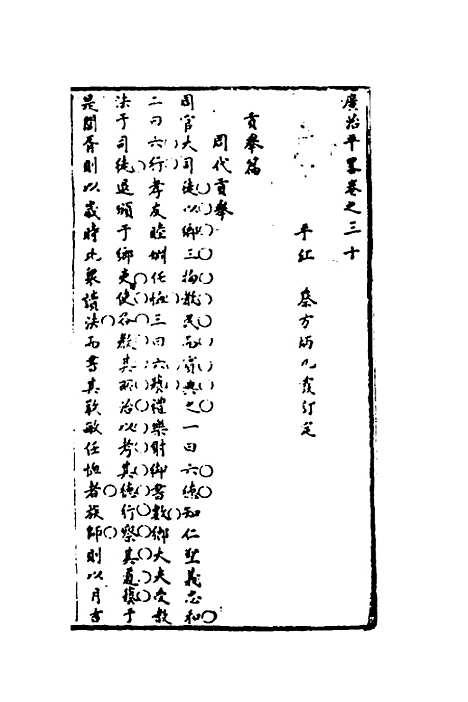 廣治平畧卷之三十
平江 蔡方炳九霞訂定
貢舉篇
周代貢舉
周官大司徒以鄉三物教民而賓興之一曰六德知仁聖義忠和
二曰六行孝友睦婣任恤三曰六藝禮樂射御書數鄉大夫受教
法于司徒退頒于鄉吏使各教其所治以考其德行察其道藝于
是閭胥則以歲時比衆讀法而書其敬敏任恤者族師則以月吉